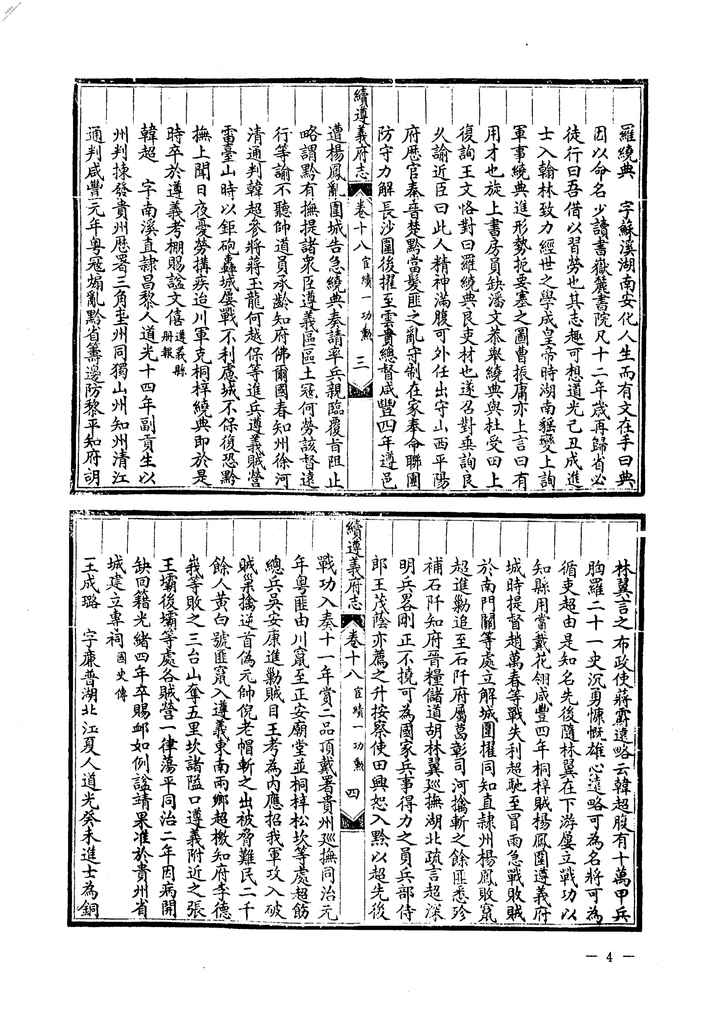 羅繞典　字蘇溪湖南安化人生而有文在手曰典
因以命名少讀書嶽麓書院凡十二年歲再歸省必
徒行曰吾借以習勞也其志趣可想道光己丑成進
士入翰林致力經世之學成皇帝時湖南猺變上詢
軍事繞典進形勢扼要塞之圖曹振庸亦上言曰有
用才也旋上書房員缺潘文恭舉繞典與杜受田上
復詢王文恪對曰羅繞典良吏材也遂召對垂詢良
乆諭近臣曰此人精神滿腹可外任出守山西平陽
府歷官秦晉楚黔當髮匪之亂守制在家奉命聯團
防守力解長沙圍後擢至雲貴總督咸豐四年遵邑
續遵義府志　卷十八　宦績一功勲　三
遭楊鳳亂圍城告急繞典奏請率兵親臨覆旨阻止
略謂黔有撫提諸衆臣遵義區區土寇何勞該督遠
行等諭不聽帥道員承齡知府佛爾國春知州徐河
清通判韓超參將蔣玉龍何越保等進兵遵義賊營
雷臺山時以鉅砲轟城屢戰不利慮城不保復恐黔
撫上聞日夜憂勞搆疾迨川軍克桐梓繞典即於是
時卒於遵義考棚賜諡文僖遵義縣册報
韓超　字南溪直隸昌黎人道光十四年副貢生以
州判揀發貴州歷署三角坉州同獨山州知州清江
通判咸豐元年粵寇煽亂黔省籌邊防黎平知府胡
林翼言之布政使蔣霨遠略云韓超腹有十萬甲兵
胸羅二十一史沉勇慷慨雄心遠略可為名將可為
循吏超由是知名先後隨林翼在下游屢立戰功以
知縣用當戴花翎咸豐四年桐梓賊楊鳳圍遵義府
城時提督趙萬春等戰失利超馳至冒雨急戰敗賊
於南門關等處立解城圍擢同知直隸州楊鳳敗竄
超進勦追至石阡府屬葛彰司河擒斬之餘匪悉珍
補石阡知府晉糧儲道胡林翼巡撫湖北疏言超深
明兵畧剛正不撓可為國家兵事得力之員兵部侍
郎王茂蔭亦薦之升按察使田興恕入黔以超先後
續遵義府志　卷十八　宦績一功勲　四
戰功入奏十一年賞二品頂戴署貴州巡撫同治元
年粵匪由川竄至正安廟堂並桐梓松坎等處超飭
總兵吳安康進勦賊目王考為內應招我軍攻入破
賊巢擒逆首偽元帥倪老帽斬之出被脅難民二千
餘人黃白號匪竄入遵義東南兩鄉超檄知府李德
莪等敗之三台山奪五里坎諸隘口遵義附近之張
王壩後壩等處各賊營一律蕩平同治二年因病開
缺回籍光緒四年卒賜䘏如例諡請果准於貴州省
城建立專祠國史傳
王成璐　字廉普湖北江夏人道光癸未進士為銅
— 4 —